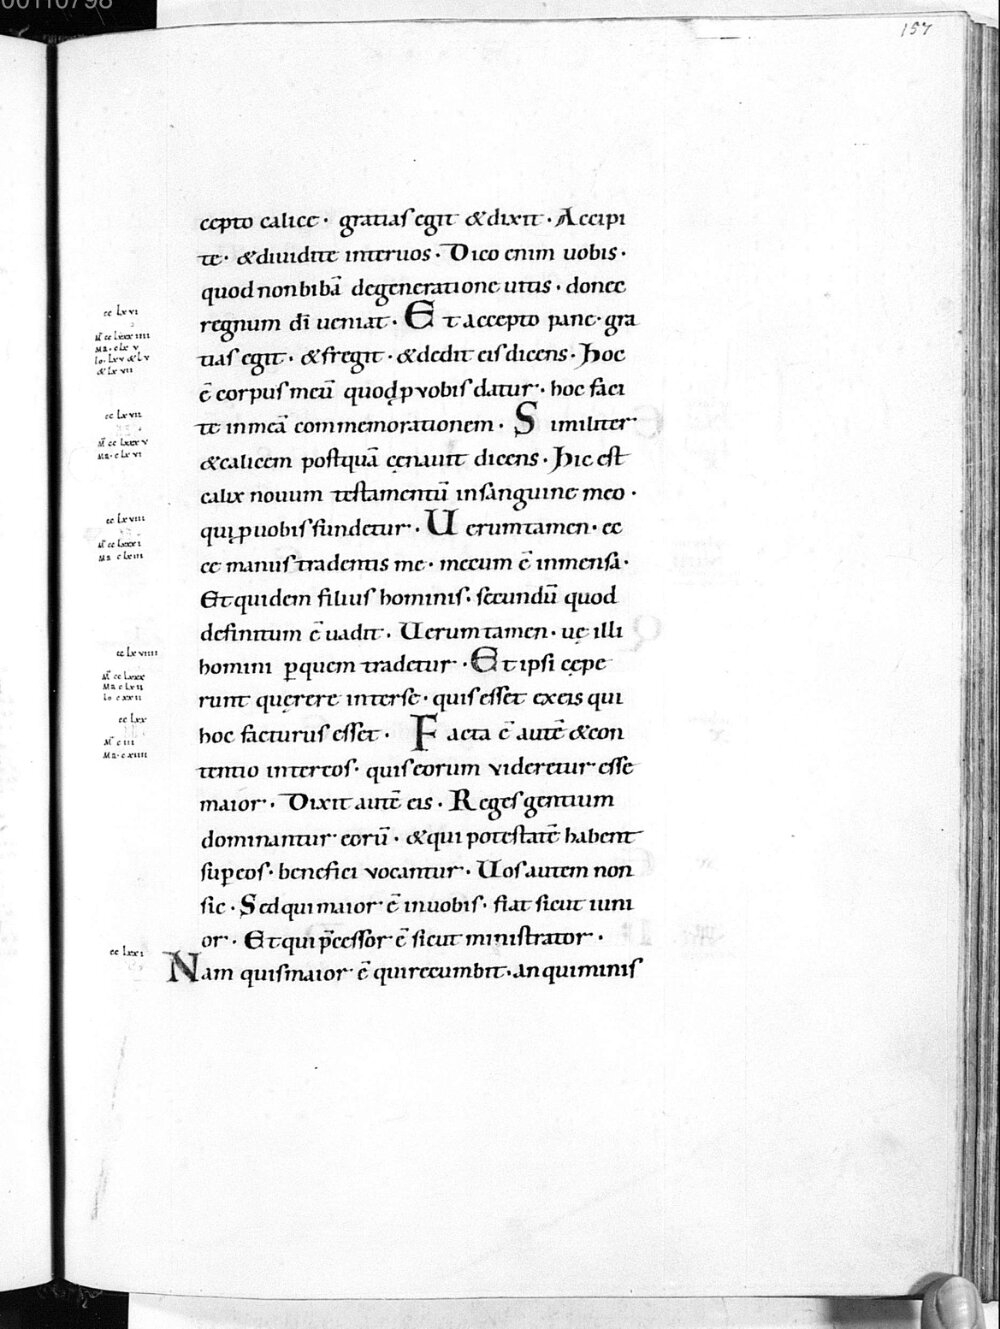 00110798
157
cepto calice · gratias egit &dixit · Accipi
te · &diuidite interuos · Dico enim uobis ·
quod nonbibā degeneratione uitis · donec
regnum dī ueniat · Et accepto pane · gra
tias egit · &fregit · &dedit eis dicens · Hoc
ē corpus meū quod ꝓ vobis datur · hoc faci
te inmeā commemorationem · Similiter
&calicem postquā cęnauit dicens · Hic est
calix nouum testamentū insanguine meo ·
qui ꝓuobis fundetur · Uerumtamen · ec
ce manus tradentis me · mecum ē inmensa ·
Et quidem filius hominis · secundū quod
definitum ē uadit · Uerumtamen · uę illi
homini ꝑquem tradetur · Et ipsi cępe
runt quęrere interse · quis esset exeis qui
hoc facturus esset · Facta ē autē &con
tentio intereos · quis eorum videretur esse
maior · Dixit autē eis · Reges gentium
dominantur eorū · &qui potestatē habent
suꝑeos · benefici vocantur · Uos autem non
sic · Sed qui maior ē inuobis · fiat sicut iuni
or · Et qui p̄cessor ē sicut ministrator ·
Nam quis maior ē qui recumbit · an qui minis
cc lxvi
cc lxvii
cc lxviii
cc lxviiii
cc lxx
cc lxxi